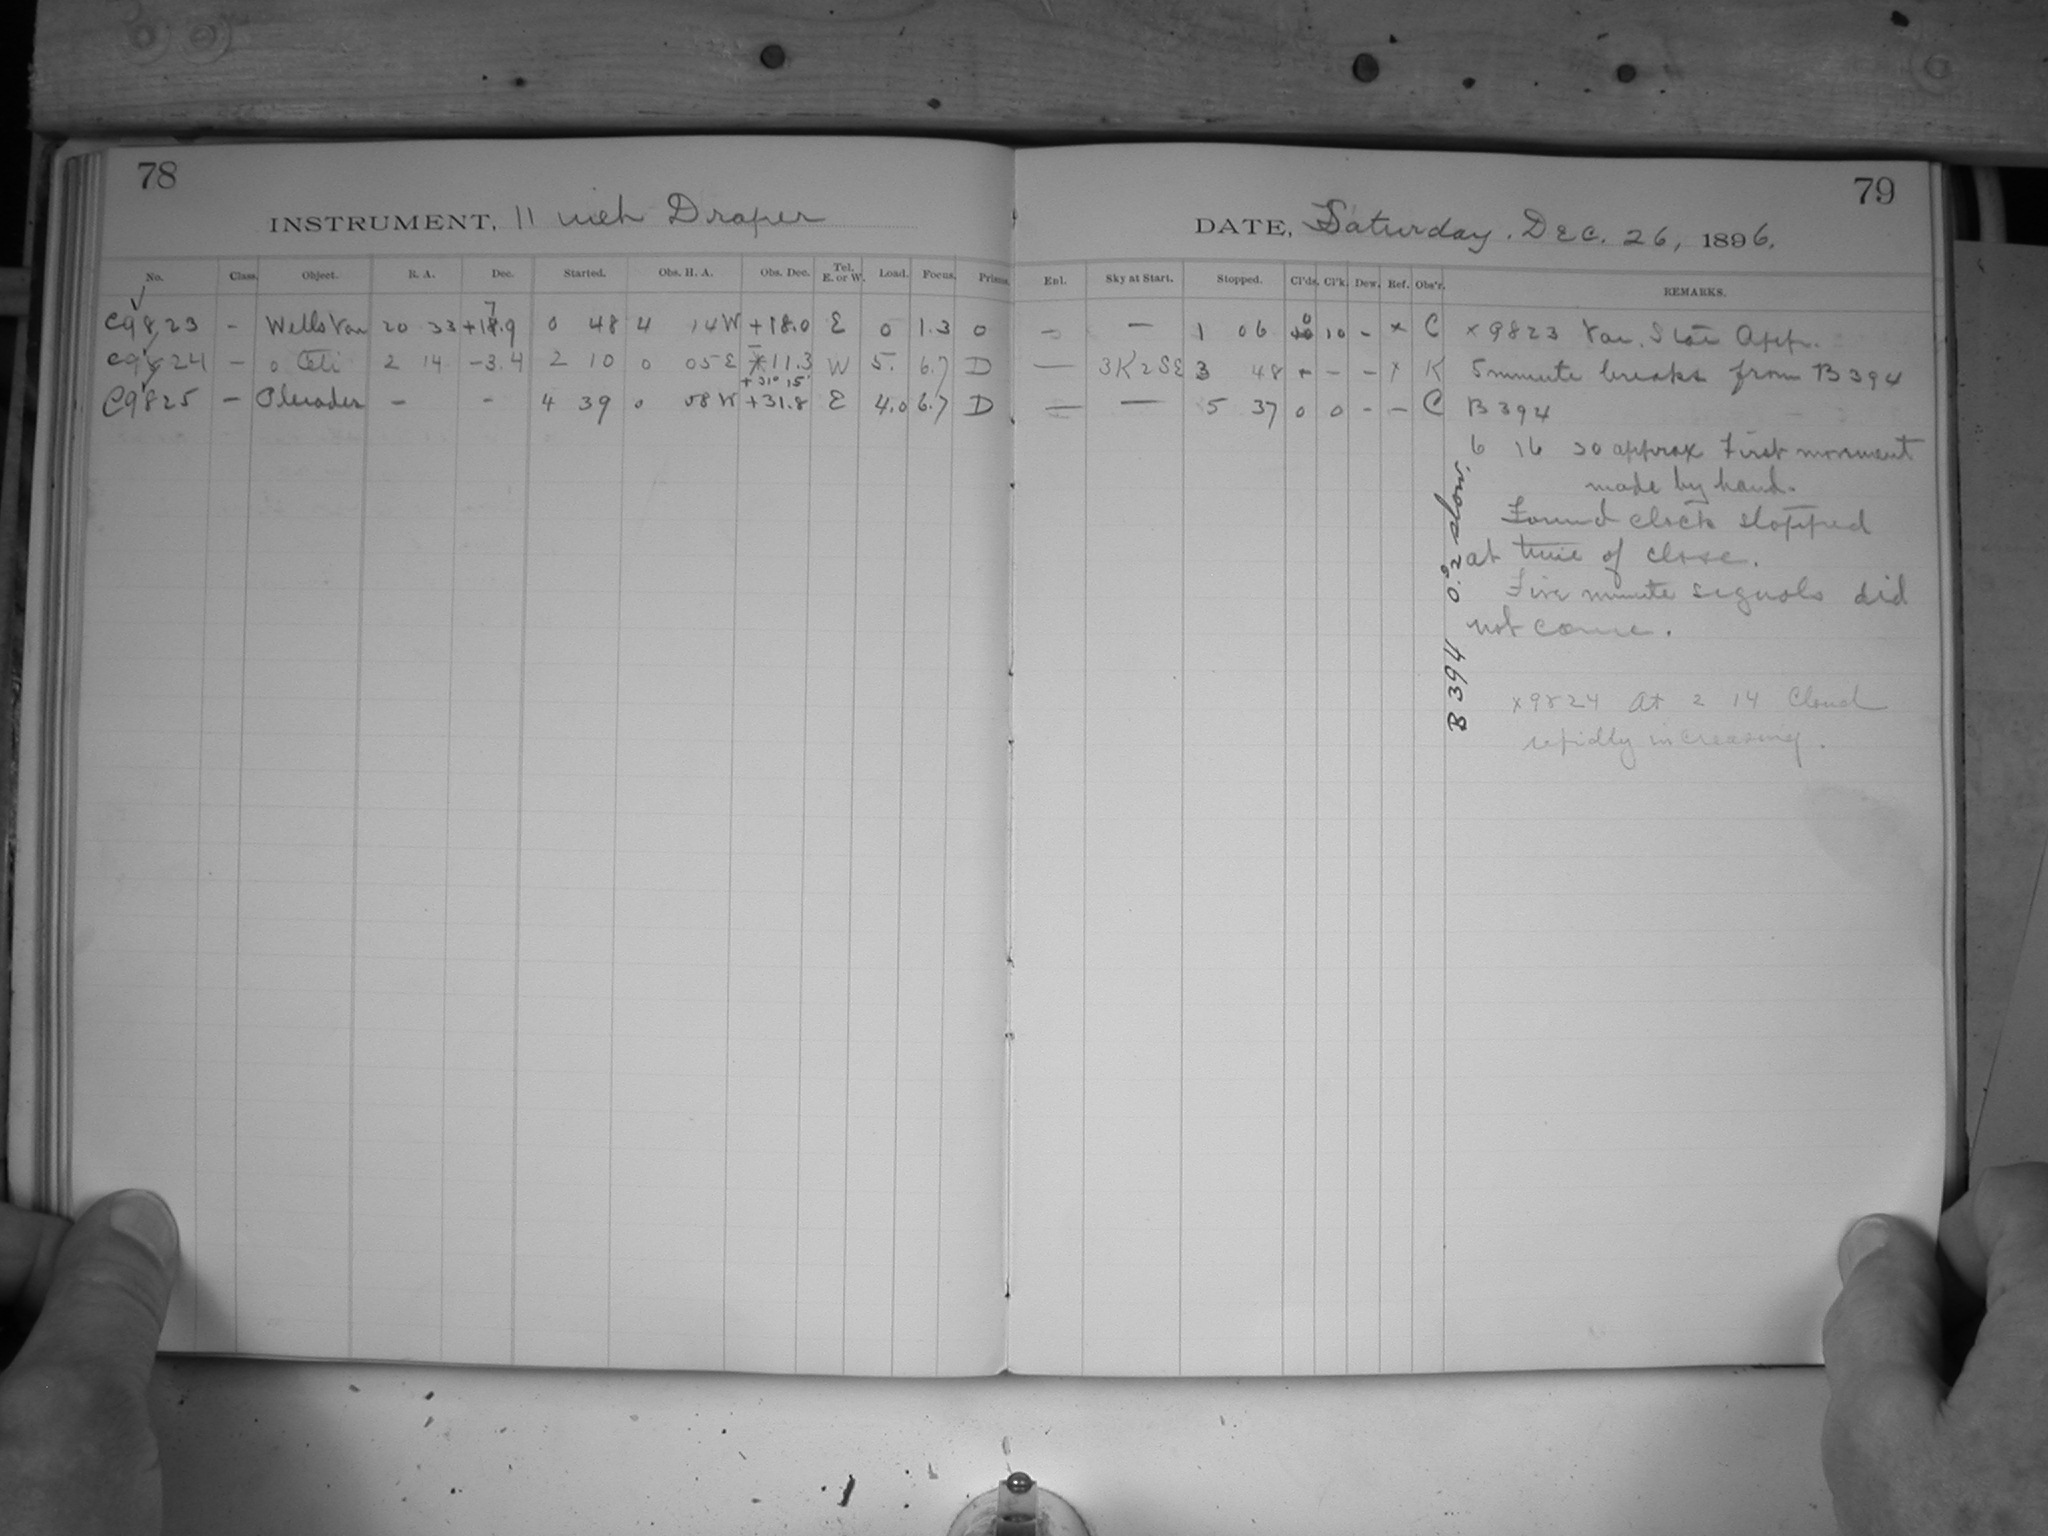 78
INSTRUMENT, 11 inch Draper
No. Class. Object. R. A. Dec. Started. Obs. H. A. Obs. Dec. Tel. E. or W. Load. Focus. Prisms.
7
C9823 - Wells Var 20 33 +18.9 0 48 4 14 W +18.0 E 0 1.3 0
C9824 - o Ceti 2 14 -3.4 2 10 0 05 E 11.3 W 5. 6.7 D
+31° 15'
C9825 - Pleiades - - 4 39 0 08 W +31.8 E 4.0 6.7 D
79
DATE, Saturday. Dec. 26, 1896.
Enl. Sky at Start. Stopped. Cl'ds. Cl'k. Dew. Ref. Obs'r. REMARKS.
0
- - 1 06 10 - x C x 9823 Var. Star App.
- 3K2SE 3 48 + - - x K 5 minute breaks from B394
- - 5 37 0 0 - - C B 394
6 16 30 approx First movement
made by hand.
Found clock stopped
at time of close.
Five minute signals did
not come.
B 394 0.s2 slow.
x9824 At 2 14 Cloud
rapidly increasing.